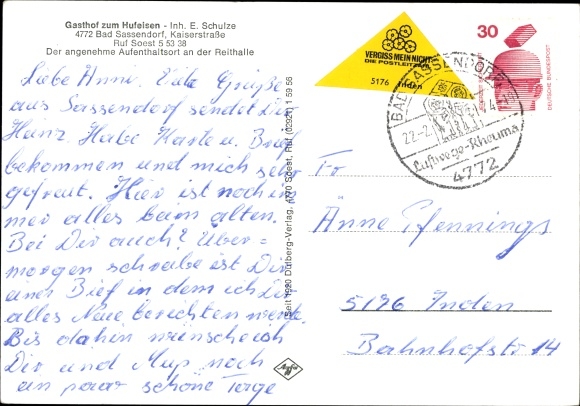 Gasthof zum Hufeisen - Inh. E. Schulze
4772 Bad Sassendorf, Kaiserstraße
Ruf Soest 5 53 38
Der angenehme Aufenthaltsort an der Reithalle
Liebe Änni. Viele Grüße
aus Sassendorf sendet Dir
Heinz. Habe Karte u. Brief
bekommen und mich sehr
gefreut. Hier ist noch im
mer alles beim alten.
Bei Dir auch? Über=
morgen schreibe ist Dir
einen Bief in dem ich Dir
alles Neue berichten werde.
Bis dahin wünsche ich
Dir und noch
ein paar schöne Tage
Seit 1920 Dülberg-Verlag, 4770 Soest, Ruf (02921) 1 59 56
Agfa
VERGISS MEIN NICHT
DIE POSTLEITZAHL
5176 Inden
30
DEUTSCHE BUNDESPOST
BAD SASSENDORF
22-2.
Luftwege-Rheuma
4772
Fr
Änne Pfennings
5196 Inden
Bahnhofstr 14